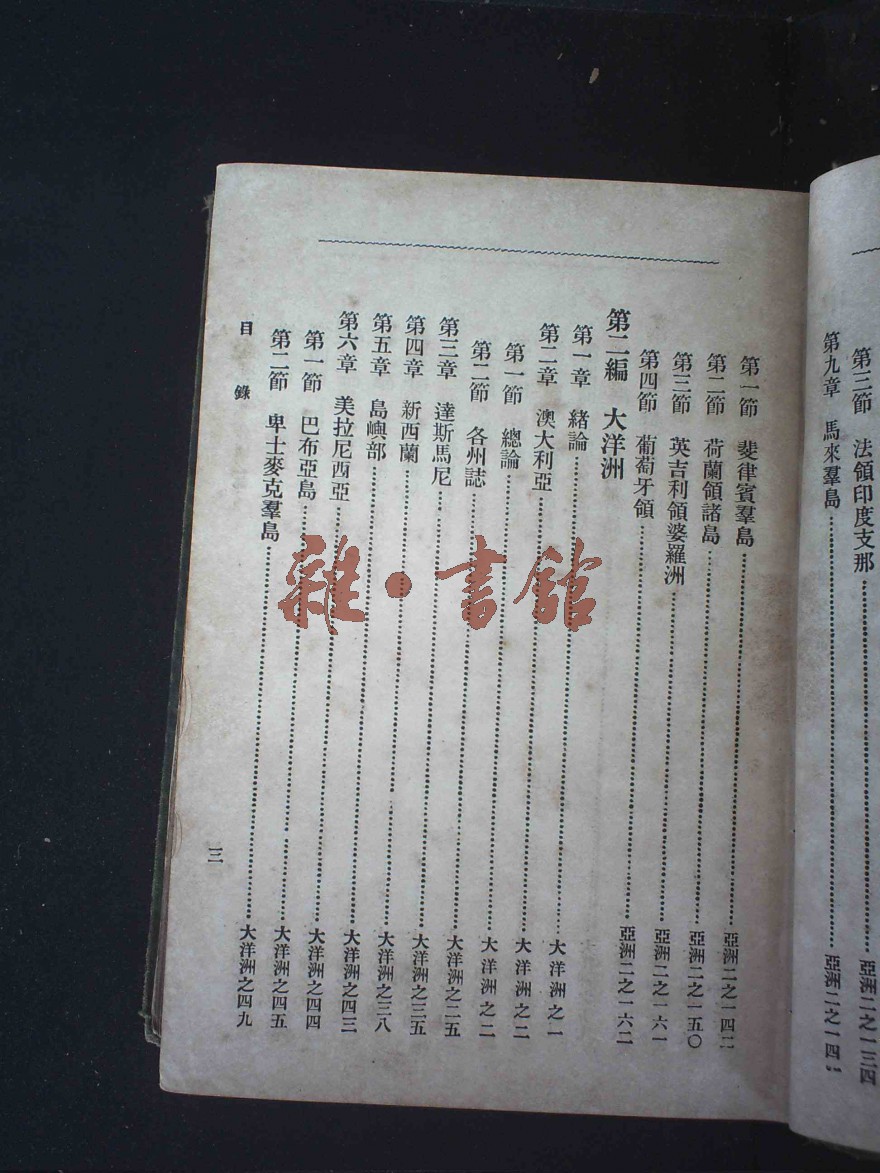 第三節　法領印度支那……亞洲二之一三四
第九章　馬來羣島……亞洲二之一四
第一節　斐律賓羣島……亞洲二之一四二
第二節　荷蘭領諸島……亞洲二之一五〇
第三節　英吉利領婆羅洲……亞洲二之一六一
第四節　葡萄牙領……亞洲二之一六二
第二編　大洋洲
第一章　緒論……大洋洲之一
第二章　澳大利亞……大洋洲之二
第一節　總論……大洋洲之二
第二節　各州誌……大洋洲之二五
第三章　達斯馬尼……大洋洲之三五
第四章　新西蘭……大洋洲之三八
第五章　島嶼部……大洋洲之四三
第六章　美拉尼西亞……大洋洲之四四
第一節　巴布亞島……大洋洲之四五
第二節　卑士麥克羣島……大洋洲之四九
目錄
三
雜·書館